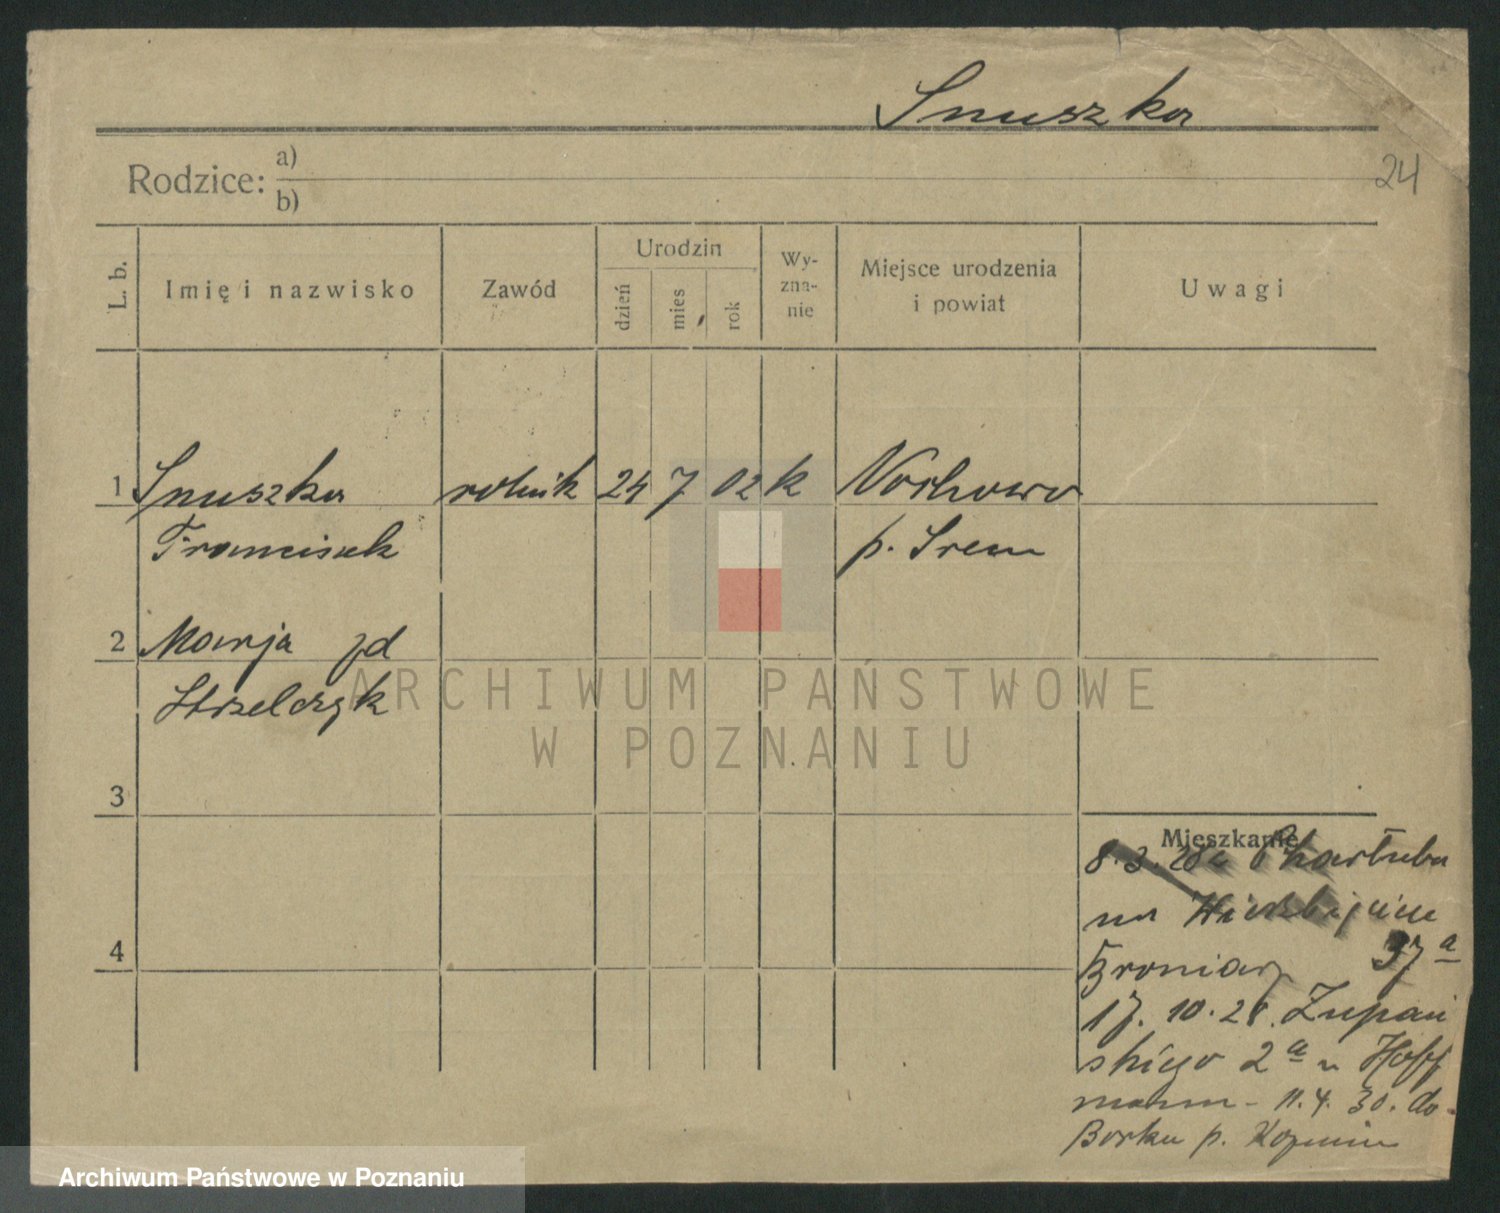 Snuszka
24
Rodzice: a)
b)
L. b. Imię i nazwisko Zawód Urodzin dzień mies rok Wyznanie Miejsce urodzenia i powiat Uwagi
1 Snuszka rolnik 24 7 02 k Nochowo
Franciszek p. Srem
2 Marja zd
Strzelczyk
ARCHIWUM PAŃSTWOWE
W POZNANIU
3
Mieszkanie
8.3.28
na
4
Broniarz 37a
17. 10. 28. Żupań
skiego 2a u Hoff
mann - 11.4.30. do
Borku p. Kozmin
Archiwum Państwowe w Poznaniu